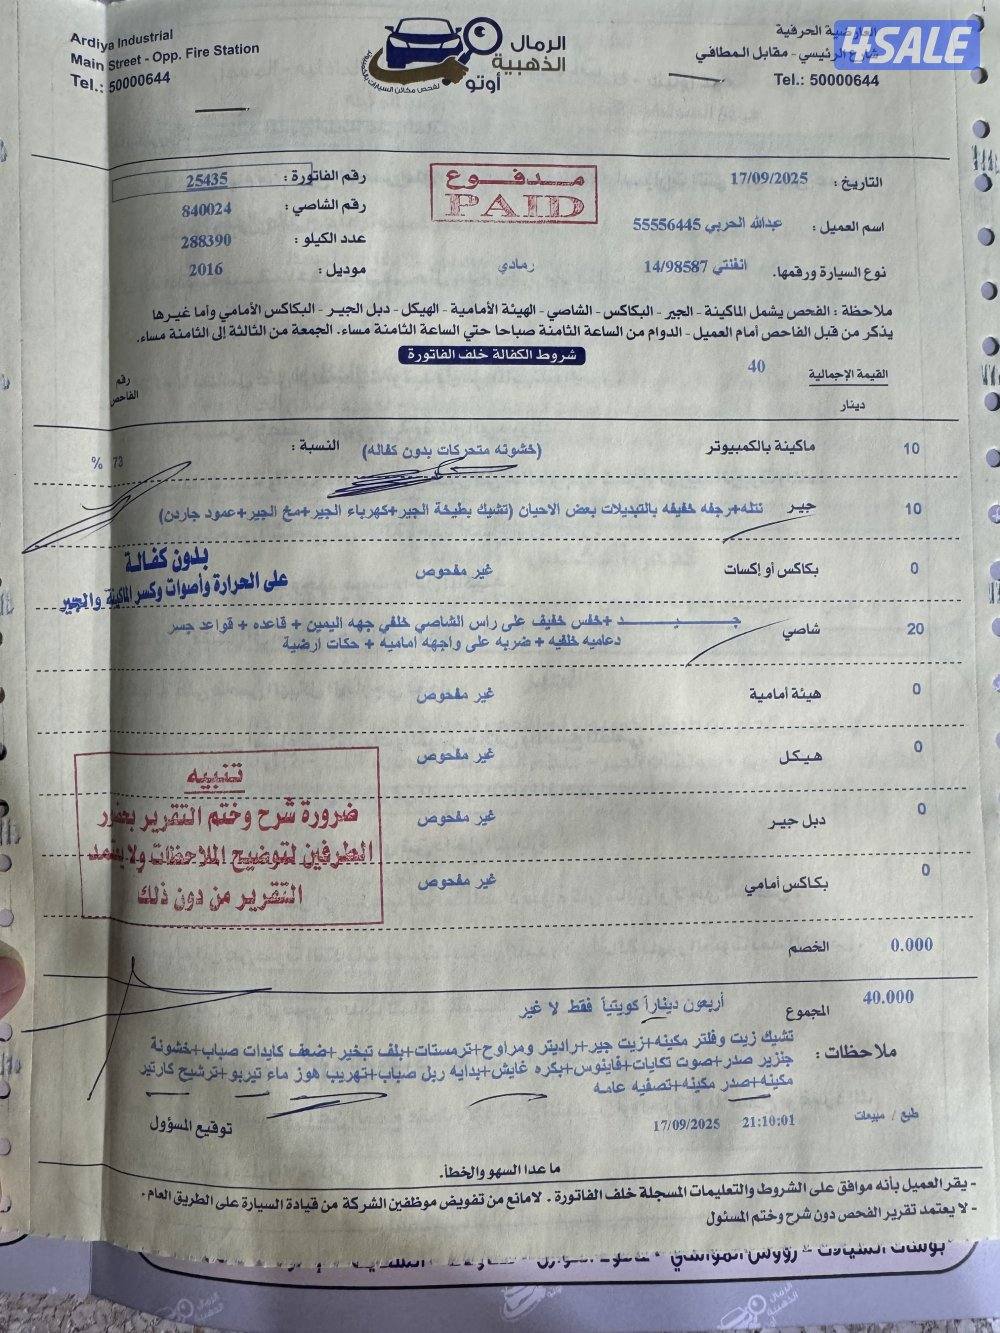 4SALE
Ardiya Industrial
Main Street - Opp. Fire Station
Tel.: 50000644
الرمال
الذهبية
أوتو
لفحص مكائن السيارات بالكمبيوتر
العارضية الحرفية
شارع الرئيسي - مقابل المطافي
Tel.: 50000644
رقم الفاتورة : 25435
رقم الشاصي : 840024
عدد الكيلو : 288390
موديل : 2016
مدفوع
PAID
التاريخ : 17/09/2025
اسم العميل : عبدالله الحربي 55556445
نوع السيارة ورقمها. انفنتي 14/98587 رمادي
ملاحظة : الفحص يشمل الماكينة - الجير - البكاكس - الشاصي - الهيئة الأمامية - الهيكل - دبل الجير - البكاكس الأمامي وأما غيرها
يذكر من قبل الفاحص أمام العميل - الدوام من الساعة الثامنة صباحا حتي الساعة الثامنة مساء. الجمعة من الثالثة إلى الثامنة مساء.
شروط الكفالة خلف الفاتورة
القيمة الإجمالية 40
دينار
رقم
الفاحص
10 ماكينة بالكمبيوتر (خشونه متحركات بدون كفاله) النسبة : 73 %
10 جير نتله+رجفه خفيفه بالتبديلات بعض الاحيان (تشيك بطيخة الجير+كهرباء الجير+مخ الجير+عمود جاردن)
0 بكاكس أو إكسات غير مفحوص
بدون كفالة
على الحرارة وأصوات وكسر الماكينة والجير
20 شاصي جـــيـــد +خفس خفيف على راس الشاصي خلفي جهه اليمين + قاعده + قواعد جسر
دعاميه خلفيه + ضربه على واجهه اماميه + حكات ارضية
0 هيئة أمامية غير مفحوص
0 هيكل غير مفحوص
0 دبل جير غير مفحوص
0 بكاكس أمامي غير مفحوص
تنبيه
ضرورة شرح وختم التقرير بحضور
الطرفين لتوضيح الملاحظات ولا يعتمد
التقرير من دون ذلك
0.000 الخصم
40.000 المجموع أربعون ديناراً كويتياً فقط لا غير
ملاحظات : تشيك زيت وفلتر مكينه+زيت جير+راديتر ومراوح+ترمستات+بلف تبخير+ضعف كايدات صباب+خشونة
جنزير صدر+صوت تكايات+فاينوس+بكره غايش+بدايه ربل صباب+تهريب هوز ماء تيربو+ترشيح كارتير
مكينه+صدر مكينه+تصفيه عامه
طبع / مبيعات 21:10:01 17/09/2025
توقيع المسؤول
ما عدا السهو والخطأ.
- يقر العميل بأنه موافق على الشروط والتعليمات المسجلة خلف الفاتورة . لامانع من تفويض موظفين الشركة من قيادة السيارة على الطريق العام .
- لا يعتمد تقرير الفحص دون شرح وختم المسئول